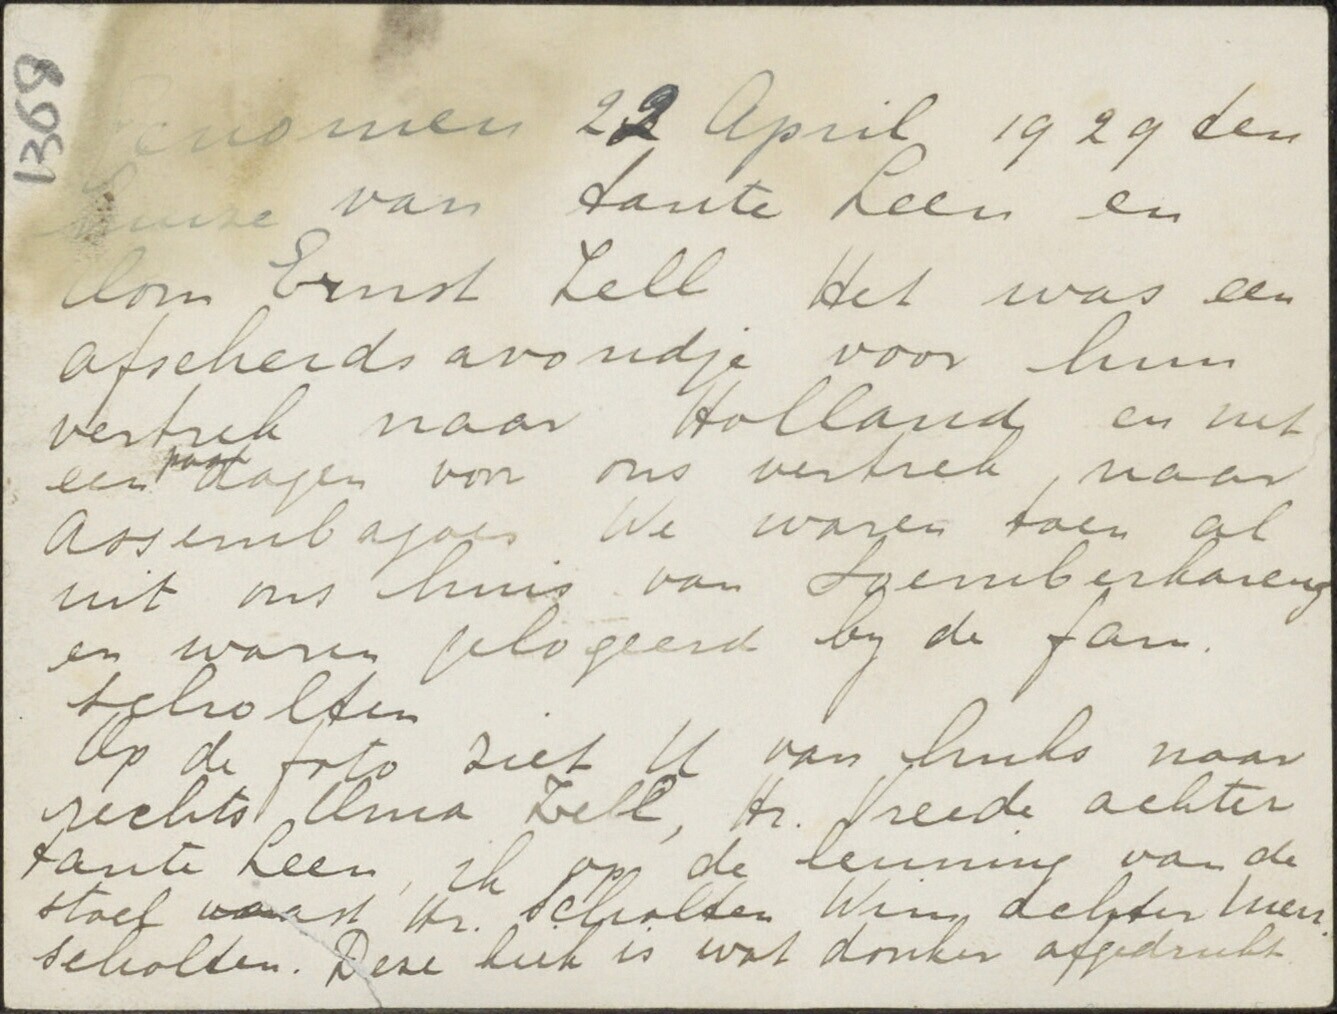 1368
Genomen 22 April 1929 ten
huize van tante Leen en
Oom Ernst Zell Het was een
afscheidsavondje voor hun
vertrek naar Holland en net
een paar dagen voor ons vertrek naar
Assembagoes We waren toen al
uit ons huis van Soemberkareng
en waren gelogeerd bij de fam.
Scholten
Op de foto ziet U van links naar
rechts Oma Zell, Hr. Vreede achter
tante Leen, ik op de leuning van de
stoel naast Hr. Scholten Wim achter Mevr.
Scholten. Deze kiek is wat donker afgedrukt